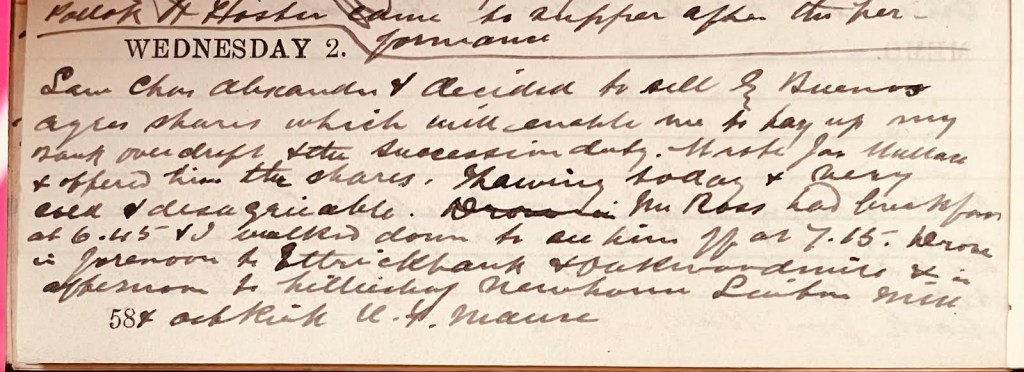 Pollok & Foster came to supper after the per-
WEDNESDAY 2. formance
Saw Chas Alexander & decided to sell Buenos
Ayres shares which will enable me to pay up my
Bank overdraft & the Succession duty. Wrote Jas
& offered him the shares. Thawing today & very
cold & disagreeable. Drove in Mr Ross had breakfast
at 6.45 & I walked down to see him off at 7.15. Drove
in forenoon to Ettrickbank & Oakwoodmill & in
afternoon to Newhouse Linton Mill
58 & Ashkirk U.F. Manse